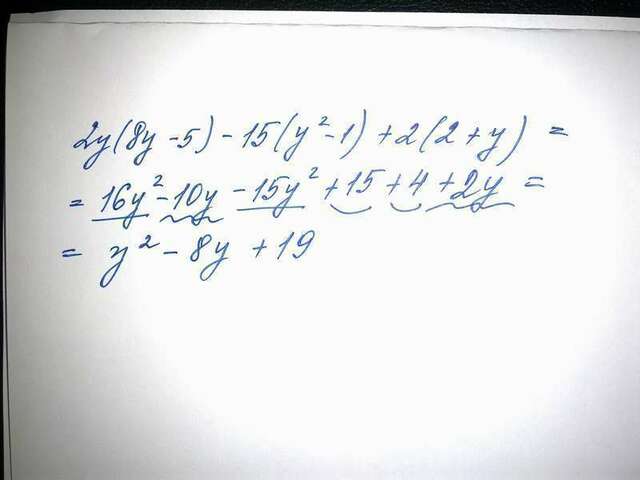 2y(8y-5)-15(y²-1)+2(2+y)=
=16y²-10y-15y²+15+4+2y=
=y²-8y+19